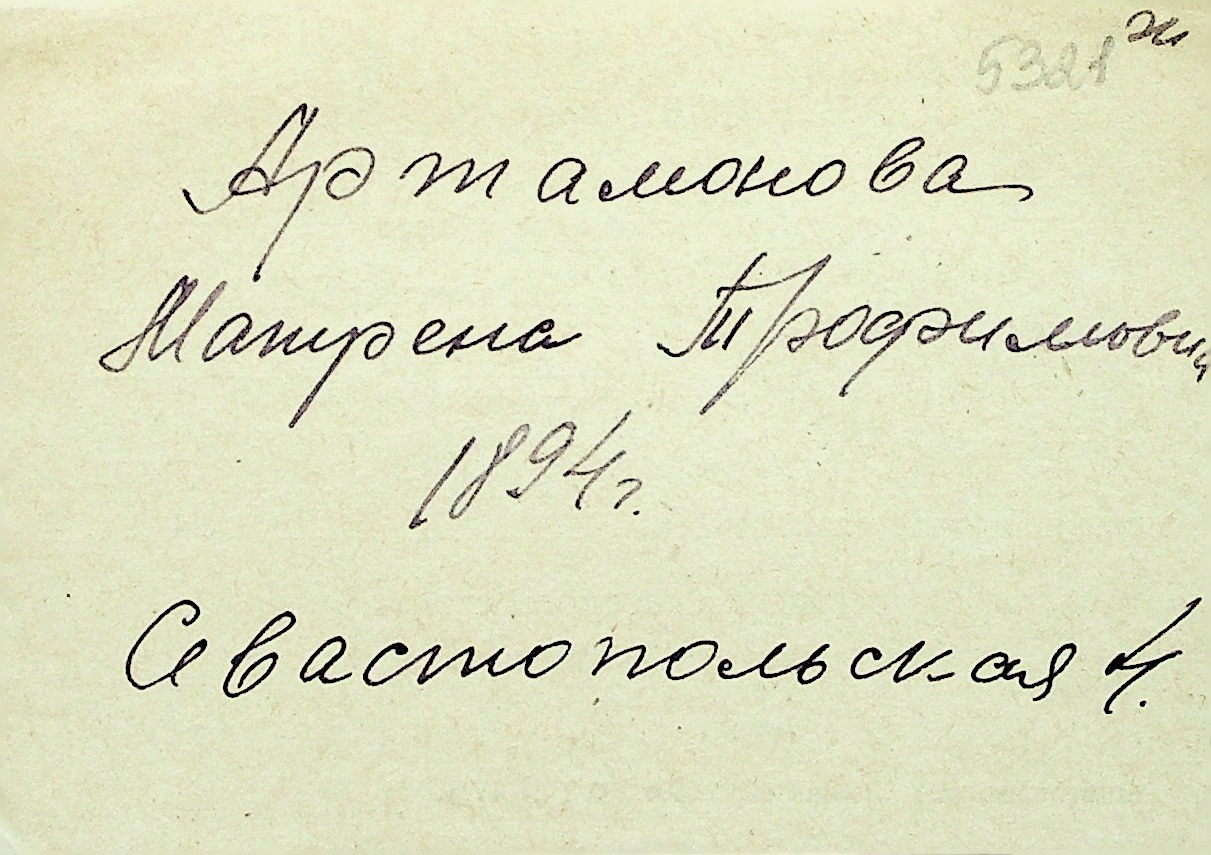 5321 ж
Артамонова
Матрена Трофимовн
1894 г.
Севастопольская 4.